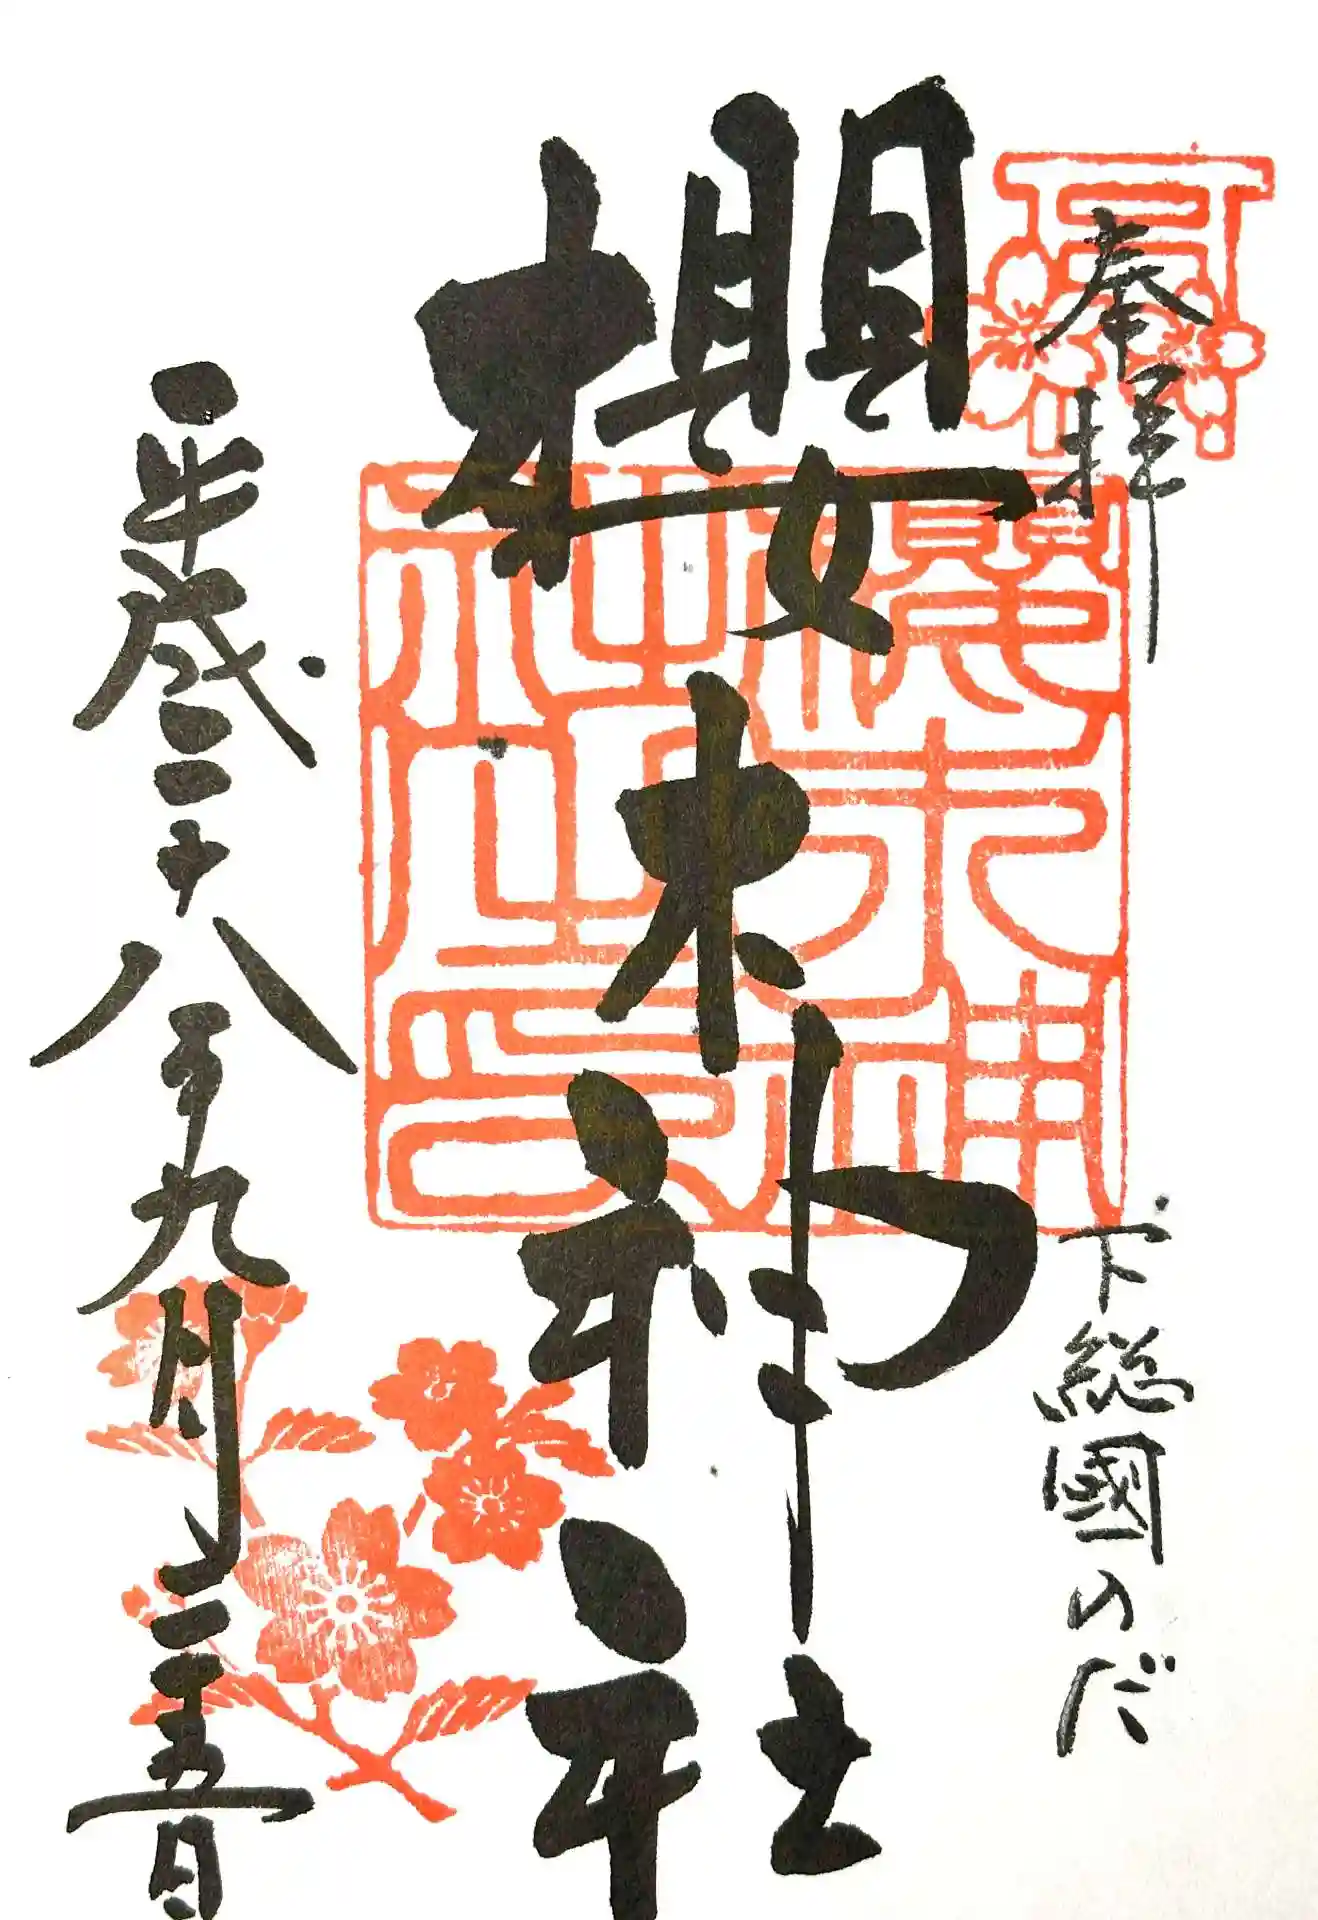 奉拝
下総國のだ
櫻木神社
平成二十八年九月二十五日
櫻木神
社之印